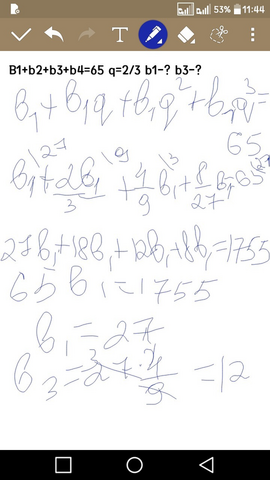 53% 11:44
B1+b2+b3+b4=65 q=2/3 b1-? b3-?
b₁+b₁q+b₁q²+b₁q³=
65
b₁\27+2b₁/3\9+4/9b₁\3+8/27b₁=65\27
27b₁+18b₁+12b₁+8b₁=1755
65b₁=1755
b₁=27
b₃=27·4/9=12